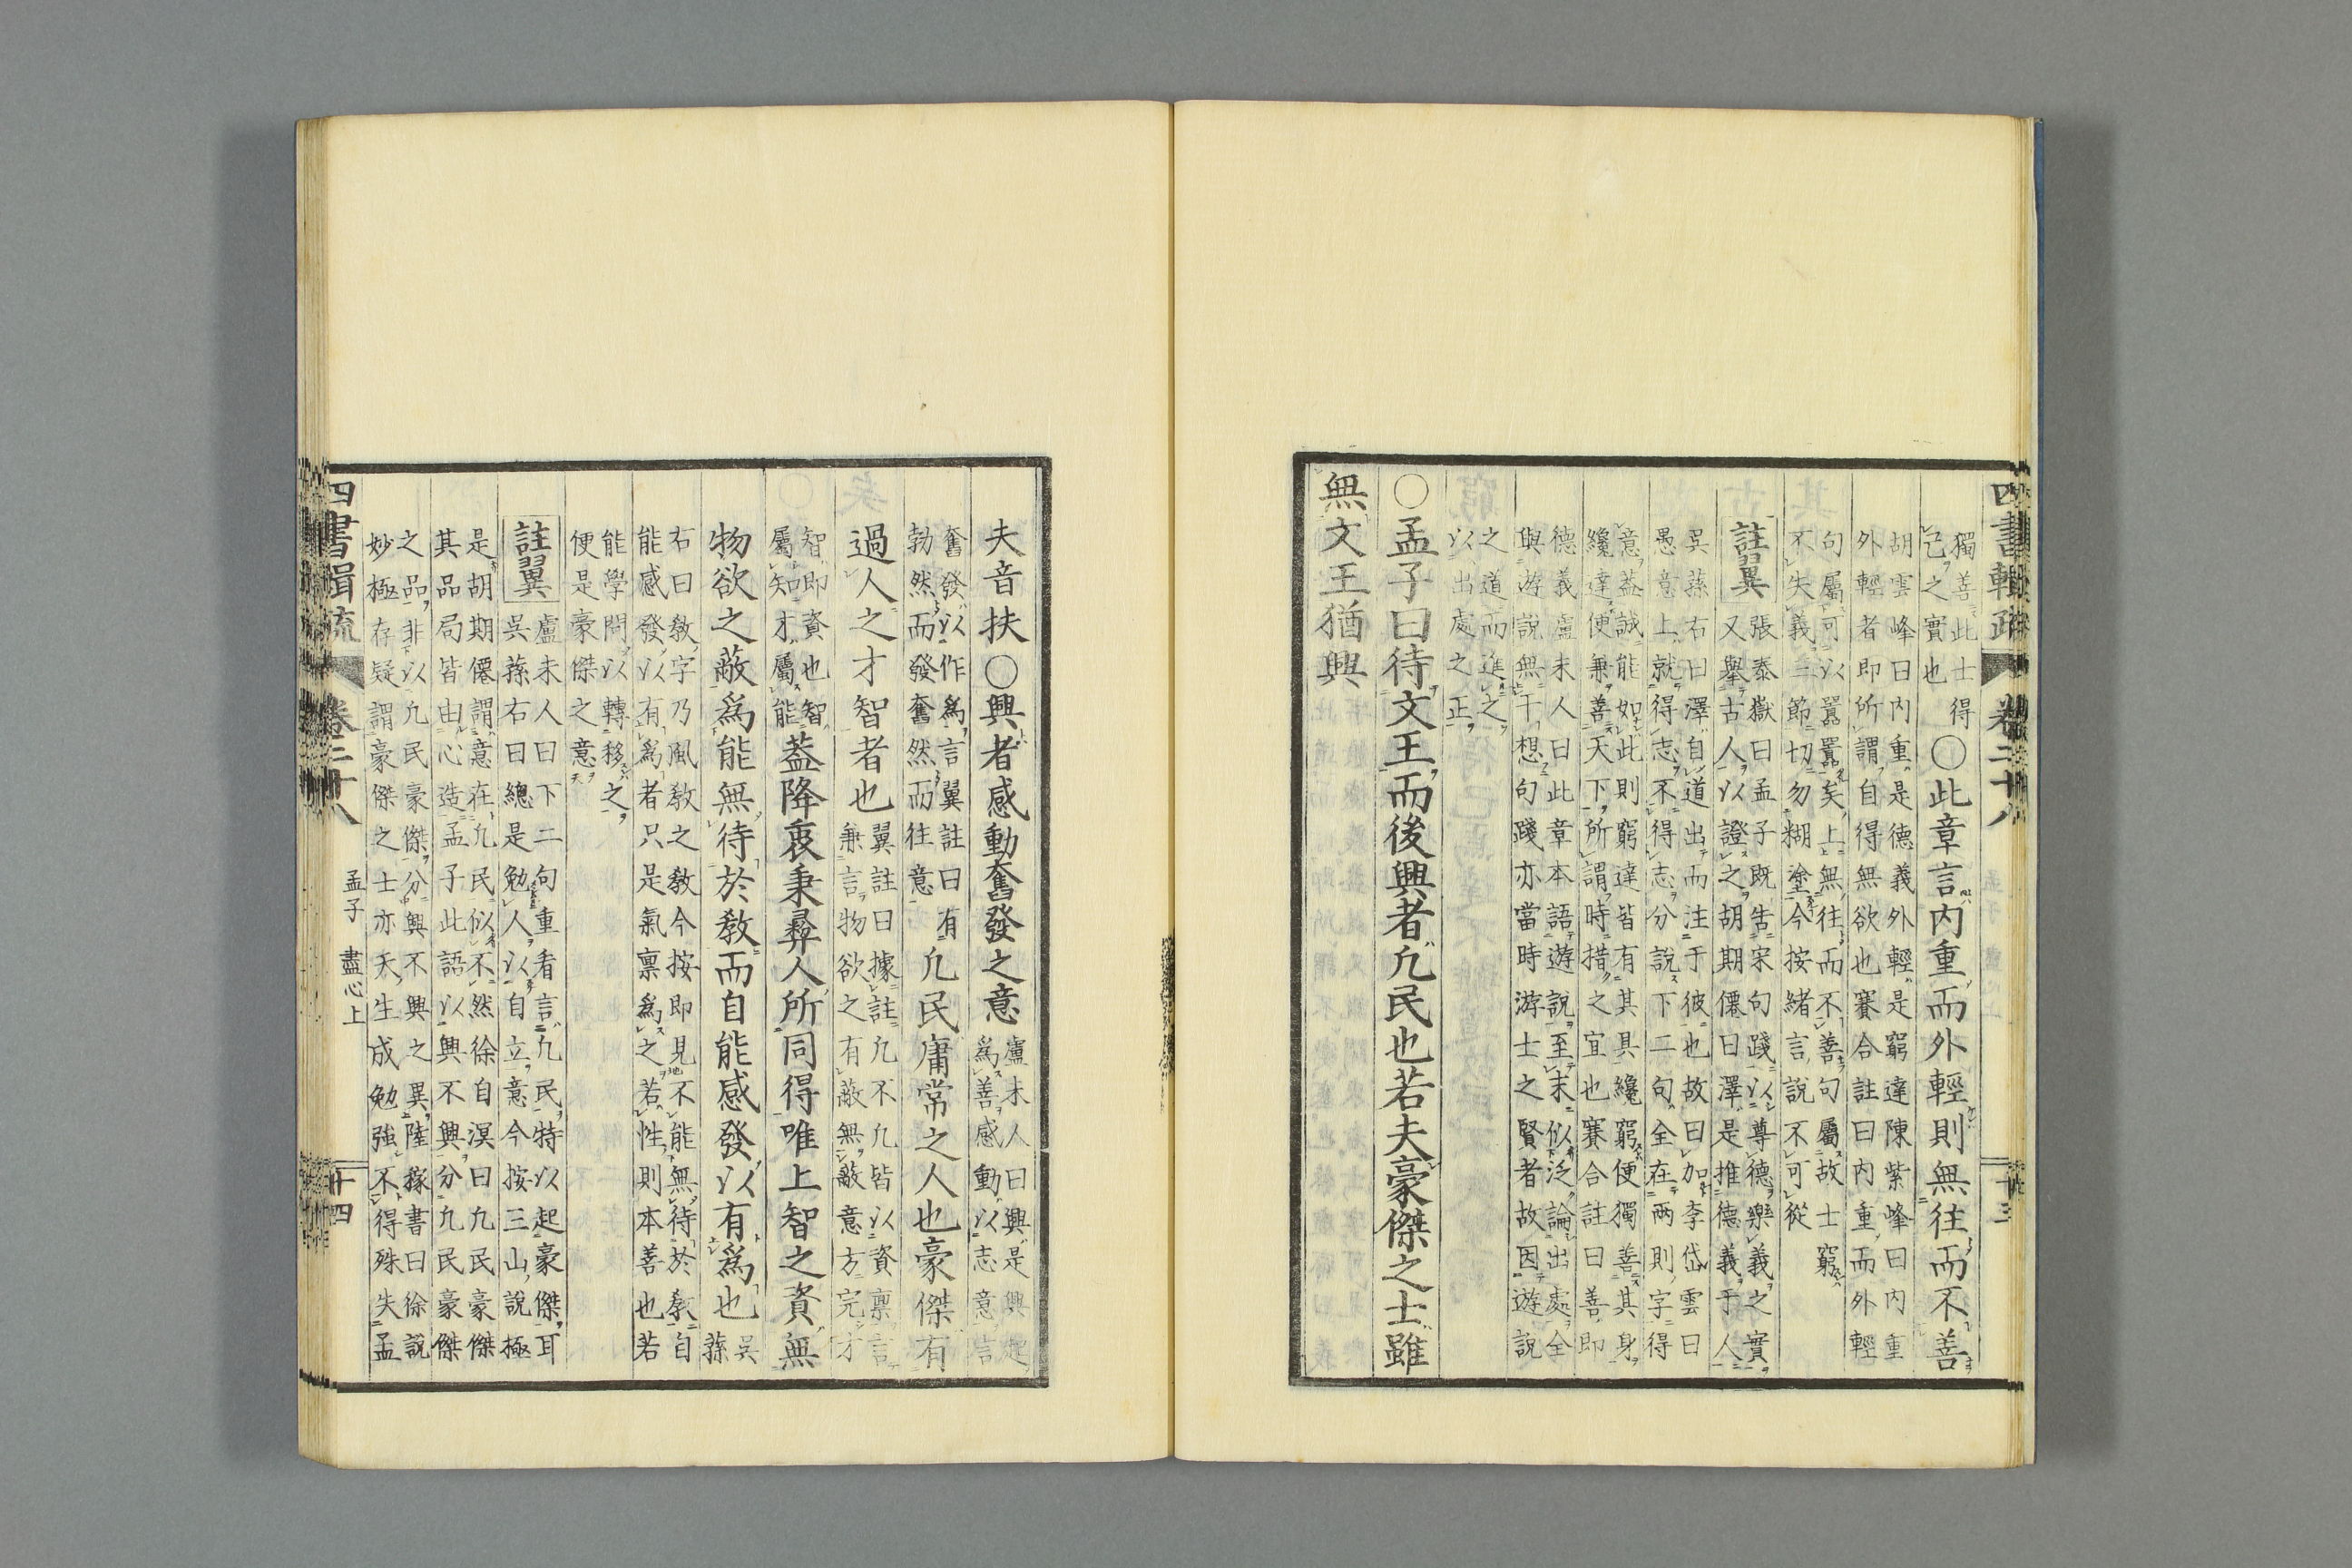 四書輯疏 卷二十八 十三
獨善此士得
己之實也
○此章言内重而外輕則無往而不善
胡雲峰曰内重是德義外輕是窮達陳紫峰曰内重
外輕者即所謂自得無欲也賽合註曰内重而外輕
句屬可以囂囂矣上無往而不善句屬故士窮
不失義二節切勿糊塗今按緒言説不可從
註翼
張泰嶽曰孟子既告宋句踐以尊德樂義之實
又舉古人以證之胡期僊曰澤是推德義于人
吳蓀右曰澤自道出而注于彼也故曰加李岱雲曰
愚意上就得志不得志分説下二句全在兩則字得
意蓋誠能如此則窮達皆有其具纔窮便獨善其身
纔達便兼善天下所謂時措之宜也賽合註曰善即
德義盧未人曰此章本語遊說至末似泛論出處全
與遊説無干想句踐亦當時游士之賢者故因遊説
之道而進之
以出處之正
○孟子曰待文王而後興者凢民也若夫豪傑之士雖
無文王猶興
夫音扶○興者感動奮發之意
盧未人曰興是興起
為善感動以志意言
奮發以作為言翼註曰有
勃然而發奮然而往意
凢民庸常之人也豪傑有
過人之才智者也
翼註曰據註凢不凢皆以資禀言
兼言物欲之有蔽無蔽意方完才
智即資也智
屬知才屬能
蓋降衷秉彜人所同得唯上智之資無
物欲之蔽為能無待於教而自能感發以有為也
吳
蓀
右曰教字乃風教之教今按即見不能無待於教自
能感發以有為者只是氣禀為之若性則本善也若
能學問以轉移之
便是豪傑之意
註翼
盧未人曰下二句重看言凢民特以起豪傑耳
吳蓀右曰總是勉人以自立意今按三山説極
是胡期僊謂意在凢民似不然徐自溟曰凢民豪傑
其品局皆由心造孟子此語以興不興分凢民豪傑
之品非以凢民豪傑分興不興之異陸稼書曰徐説
妙極存疑謂豪傑之士亦天生成勉強不得殊失孟
四書輯疏 卷二十八 孟子 盡心上 十四